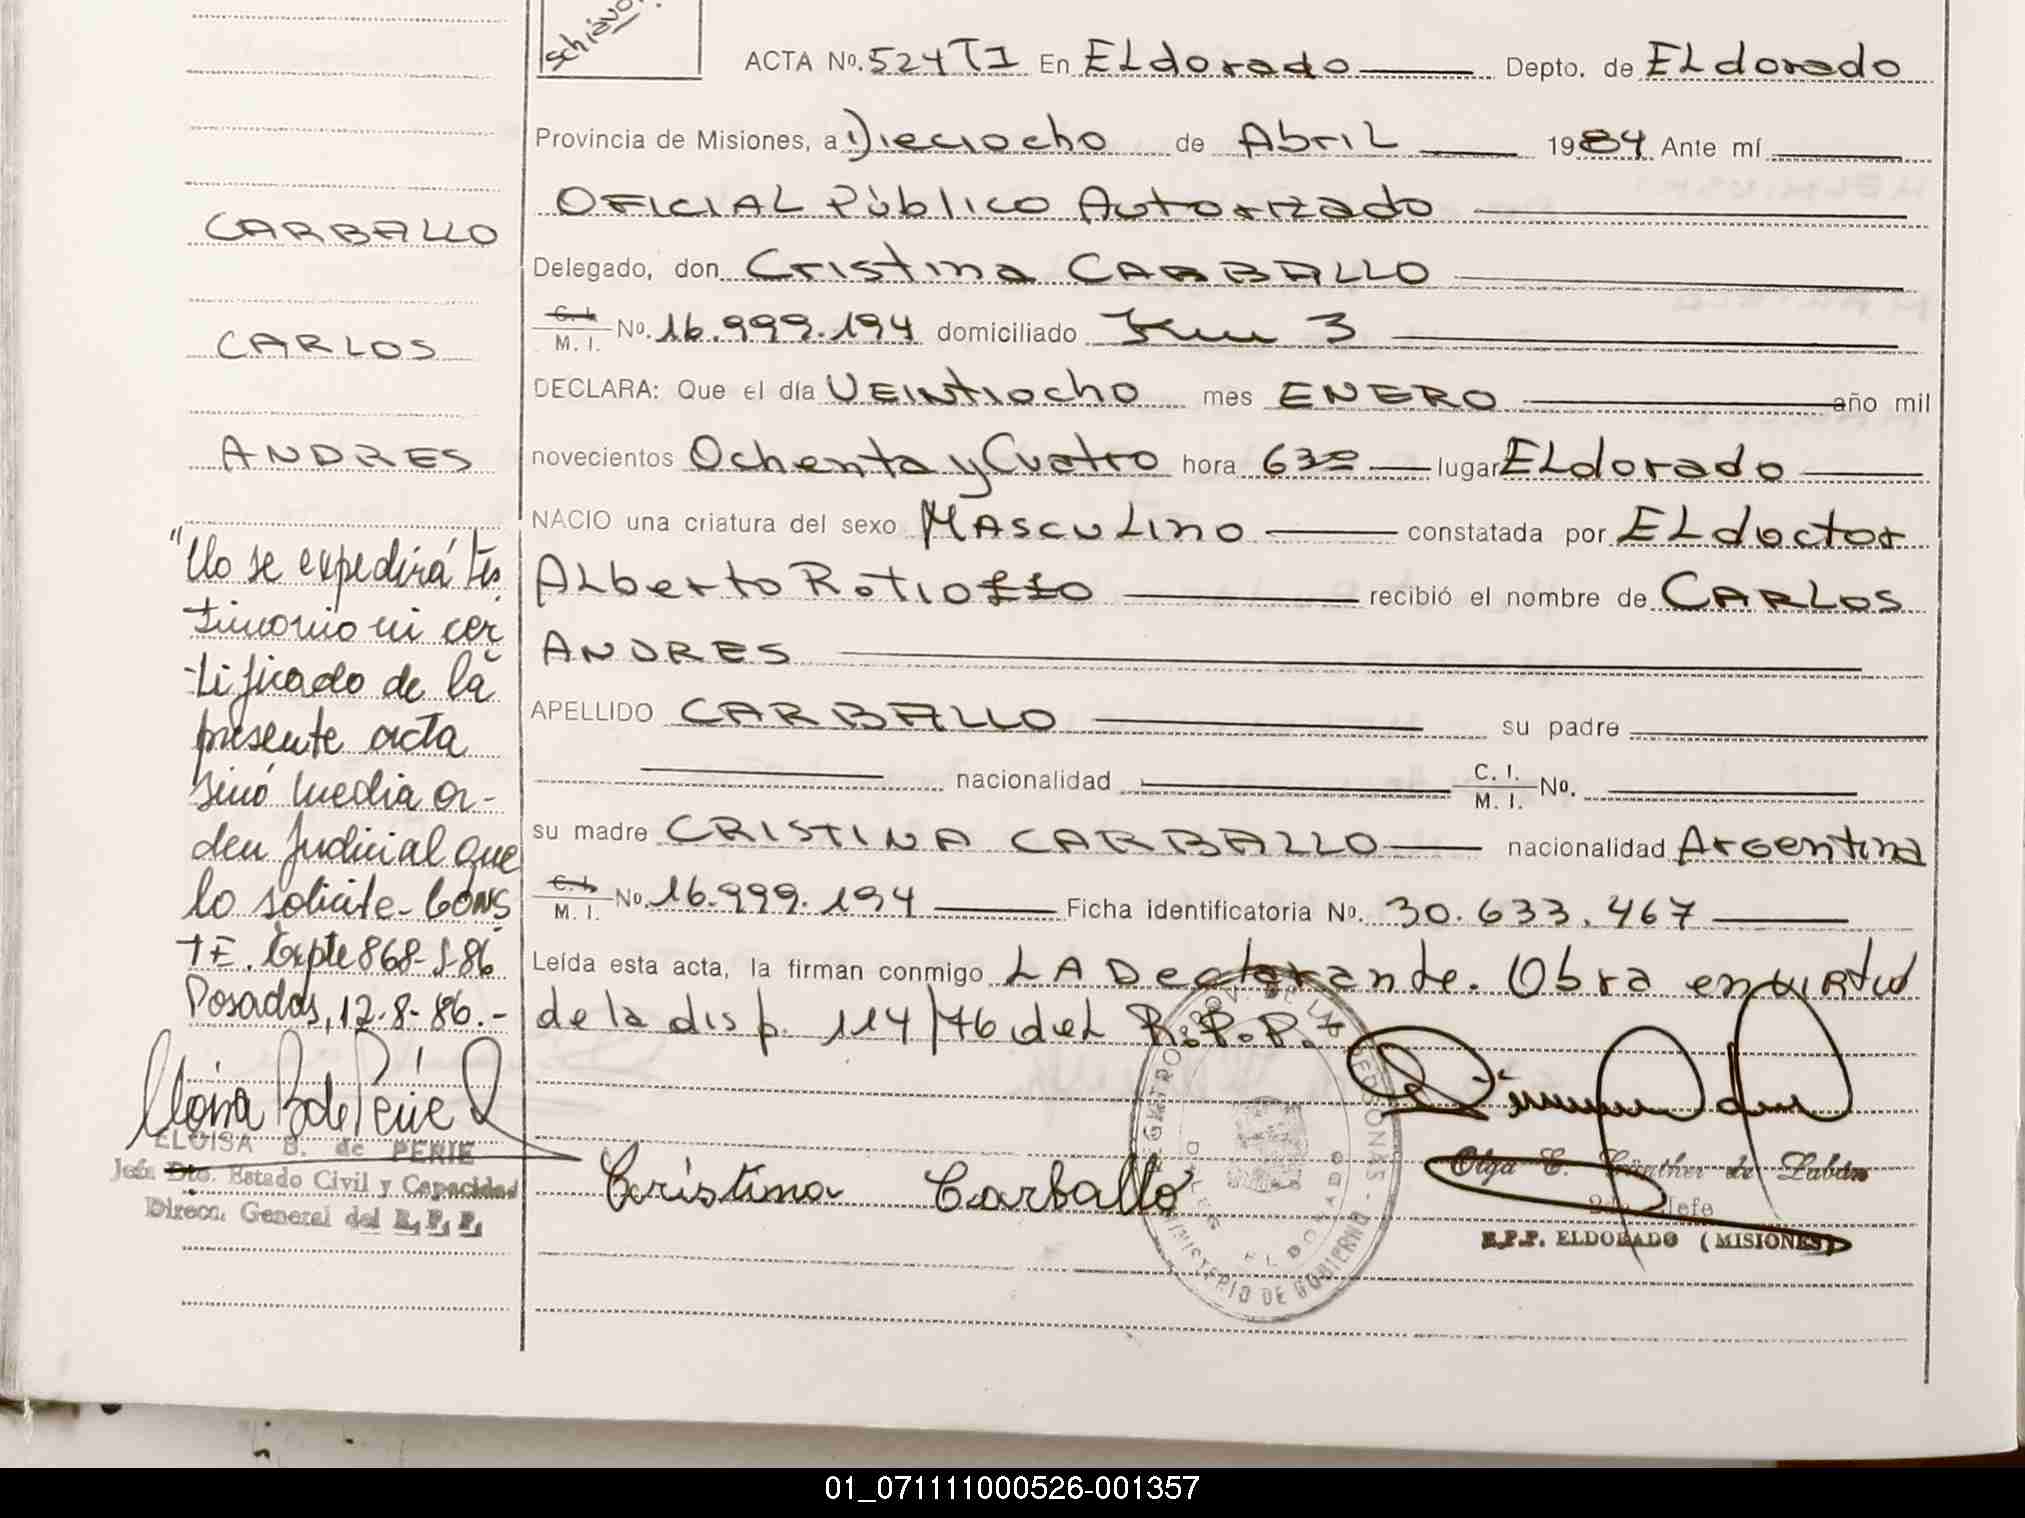 Schiavo
ACTA Nº. 524 TI En ELdorado Depto. de ELdorado
Provincia de Misiones, a Dieciocho de AbriL 1984 Ante mí
OFICIAL Público Autorizado
Delegado, don Cristina CARBALLO
C. I. M. I. Nº. 16.999.194 domiciliado Km 3
DECLARA: Que el día VEINtiocho mes ENERO año mil
novecientos Ochenta y Cuatro hora 630 lugar ELdorado
NACIO una criatura del sexo MASCULINO constatada por EL doctor
ALberto recibió el nombre de CARLOS
ANDRES
APELLIDO CARBALLO su padre
nacionalidad C. I. M. I. Nº.
su madre CRISTINA CARBALLO nacionalidad Argentina
C. I. M. I. Nº. 16.999.194 Ficha identificatoria Nº. 30.633.467
Leída esta acta, la firman conmigo LA Declarante. Obra en virtud
de la disp. 114/76 del R.P.P.
Cristina Carballo
CARBALLO
CARLOS
ANDRES
"No se expedirá tes
timonio ni cer
tificado de la
presente acta
sinó media or-
den Judicial que
lo solicite- CONS
TE. Expte 868-S-86
Posadas, 12-8-86.-
ELOISA B. de PERIE
Jefa Dto. Estado Civil y Capacidad
Direcc. General del R. P. P.
MINISTERIO DE GOBIERNO
ELDORADO
Olga E. Günther de Zubán
2do Jefe
R.P.P. ELDORADO (MISIONES)
01_071111000526-001357